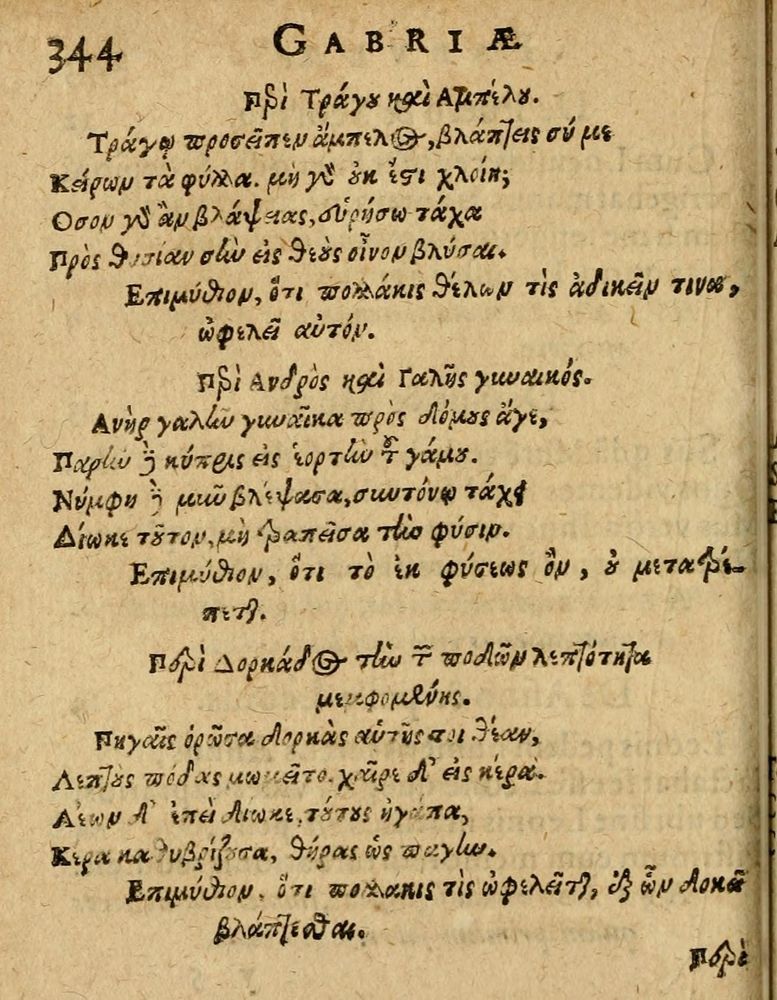 344 GABRIÆ
Περὶ Τράγου καὶ Αμπέλου.
Τράγῳ προσεῖπεν ἄμπελος, βλάπτεις σύ με
Κείρων τὰ φύλλα. μὴ γὸ οὐκ ἔστι χλοίη;
Οσον γὸ ἂν βλάψειας, εὑρήσω τάχα
Πρὸς θυσίαν σὴν εἰς θεοὺς οἶνον βλύσαι.
Επιμύθιον, ὅτι πολλάκις θέλων τὶς ἀδικεῖν τινα,
ὠφελεῖ αὐτόν.
Περὶ Ανδρὸς καὶ Γαλῆς γυναικός.
Ανὴρ γαλῆν γυναῖκα πρὸς δόμους ἄγε,
Παρῆν ἢ κύπρις εἰς ἑορτὴν τοῦ γάμου.
Νύμφη ἢ μῦν βλέψασα, σὺν τόνῳ τάχει
Δίωκε τοῦτον, μὴ τραπεῖσα τὴν φύσιν.
Επιμύθιον, ὅτι τὸ ἐκ φύσεως ὂν, οὐ μετατρέ-
πεται.
Περὶ Δορκάδος τὴν τῶν ποδῶν λεπτότητα
μεμφομένης.
Πηγαῖς ὁρῶσα δορκὰς αὑτῆς τοι θέαν,
Λεπτοὺς πόδας μωκεῖτο. χαῖρε δ' εἰς κέρα.
Λέων δ' ἐπεὶ δίωκε, τούτους ἠγάπα,
Κέρα καθυβρίζουσα, θήρας ὡς παγὴν.
Επιμύθιον, ὅτι πολλακις τὶς ὠφελεῖται, ἐξ ὧν δοκεῖ
βλάπτεσθαι.
Περὶ